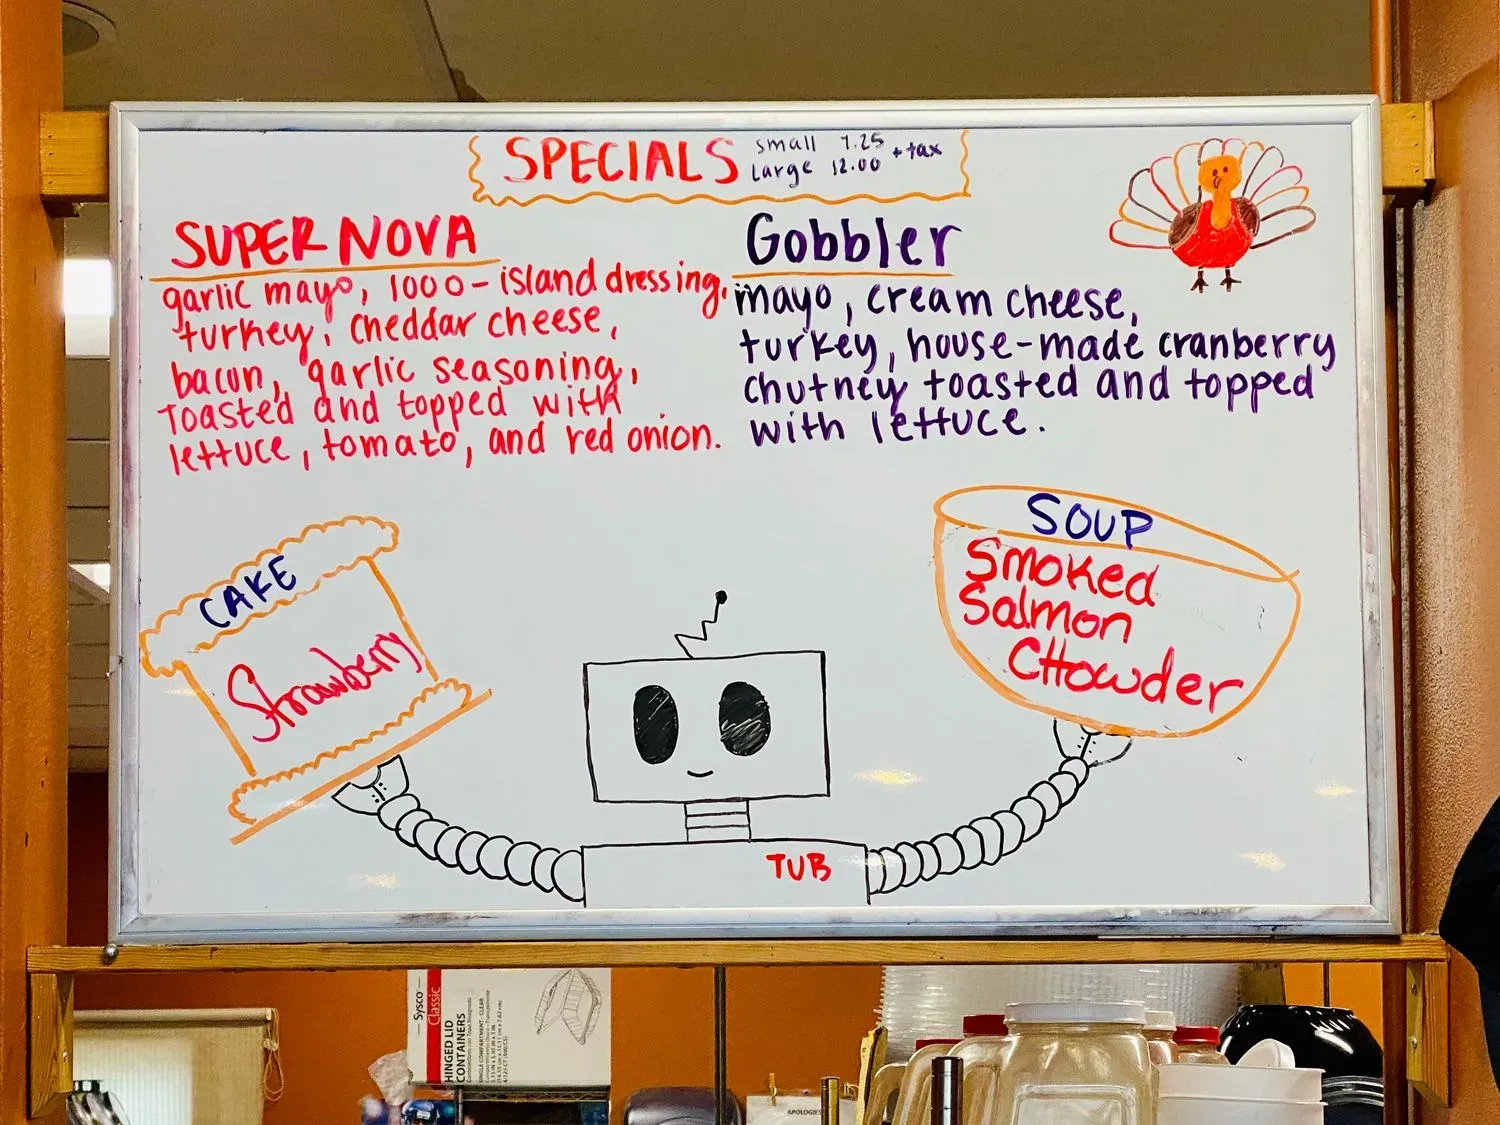 SPECIALS
small 7.25
large 12.00 + tax
SUPER NOVA
garlic mayo, 1000-island dressing,
turkey, cheddar cheese,
bacon, garlic seasoning,
Toasted and topped with
lettuce, tomato, and red onion.
Gobbler
mayo, cream cheese,
turkey, house-made cranberry
chutney toasted and topped
with lettuce.
CAKE
Strawberry
SOUP
Smoked
Salmon
CHowder
TUB
Sysco
Classic
HINGED LID
CONTAINERS
SINGLE COMPARTMENT - CLEAR
APOLOGIES